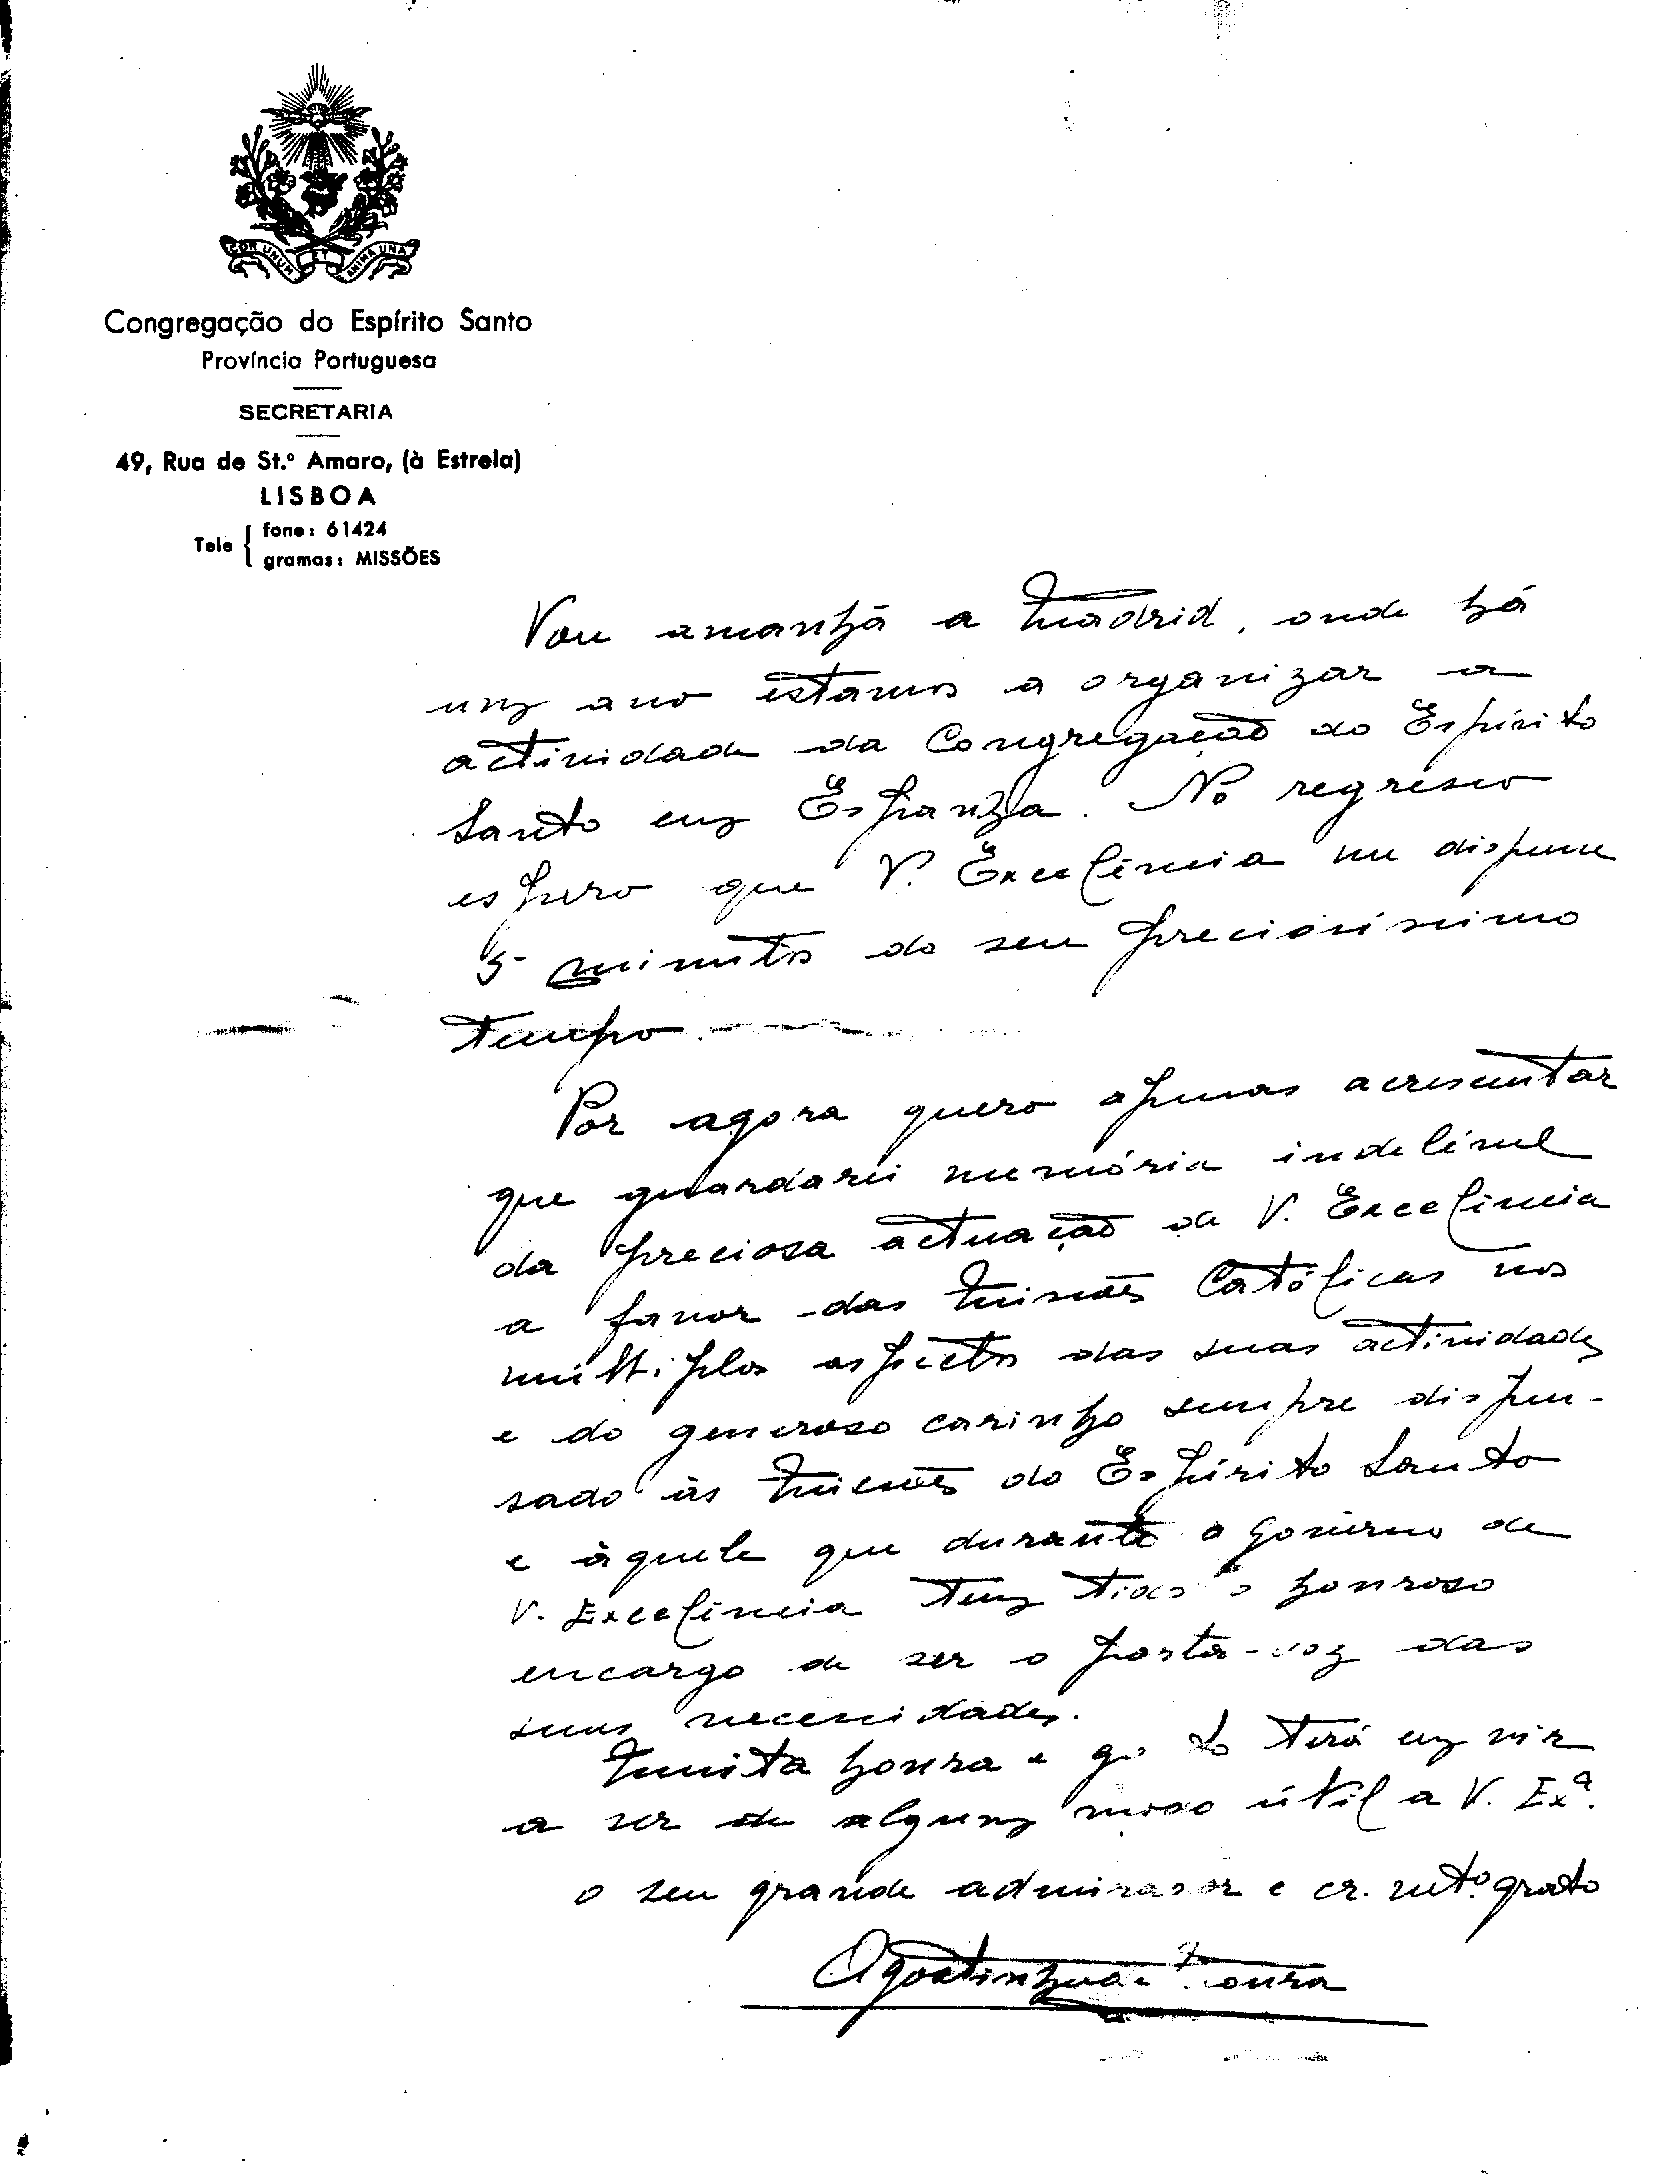 COR UNUM ET ANIMA UNA
Congregação do Espírito Santo
Província Portuguesa
SECRETARIA
49, Rua de St.º Amaro, (à Estrela)
LISBOA
Tele { fone: 61424
gramas: MISSÕES
Vou amanhã a Madrid, onde há
um ano estamos a organizar a
actividade da Congregação do Espírito
Santo em Espanha. No regresso
espero que V. Excelência me dispense
5 minutos do seu preciosíssimo
tempo.
Por agora quero apenas acrescentar
que guardarei memória indelével
da preciosa actuação de V. Excelência
a favor das Missões Católicas nos
múltiplos aspectos das suas actividades
e do generoso carinho sempre dispen-
sado às Missões do Espírito Santo
e àquele que durante o Govêrno de
V. Excelência tem tido o honroso
encargo de ser o porta-voz das
suas necessidades.
Muita honra e gosto terá em vir
a ser de algum modo útil a V. Exª.
o seu grande admirador e cr. mtº grato
Agostinho de Moura